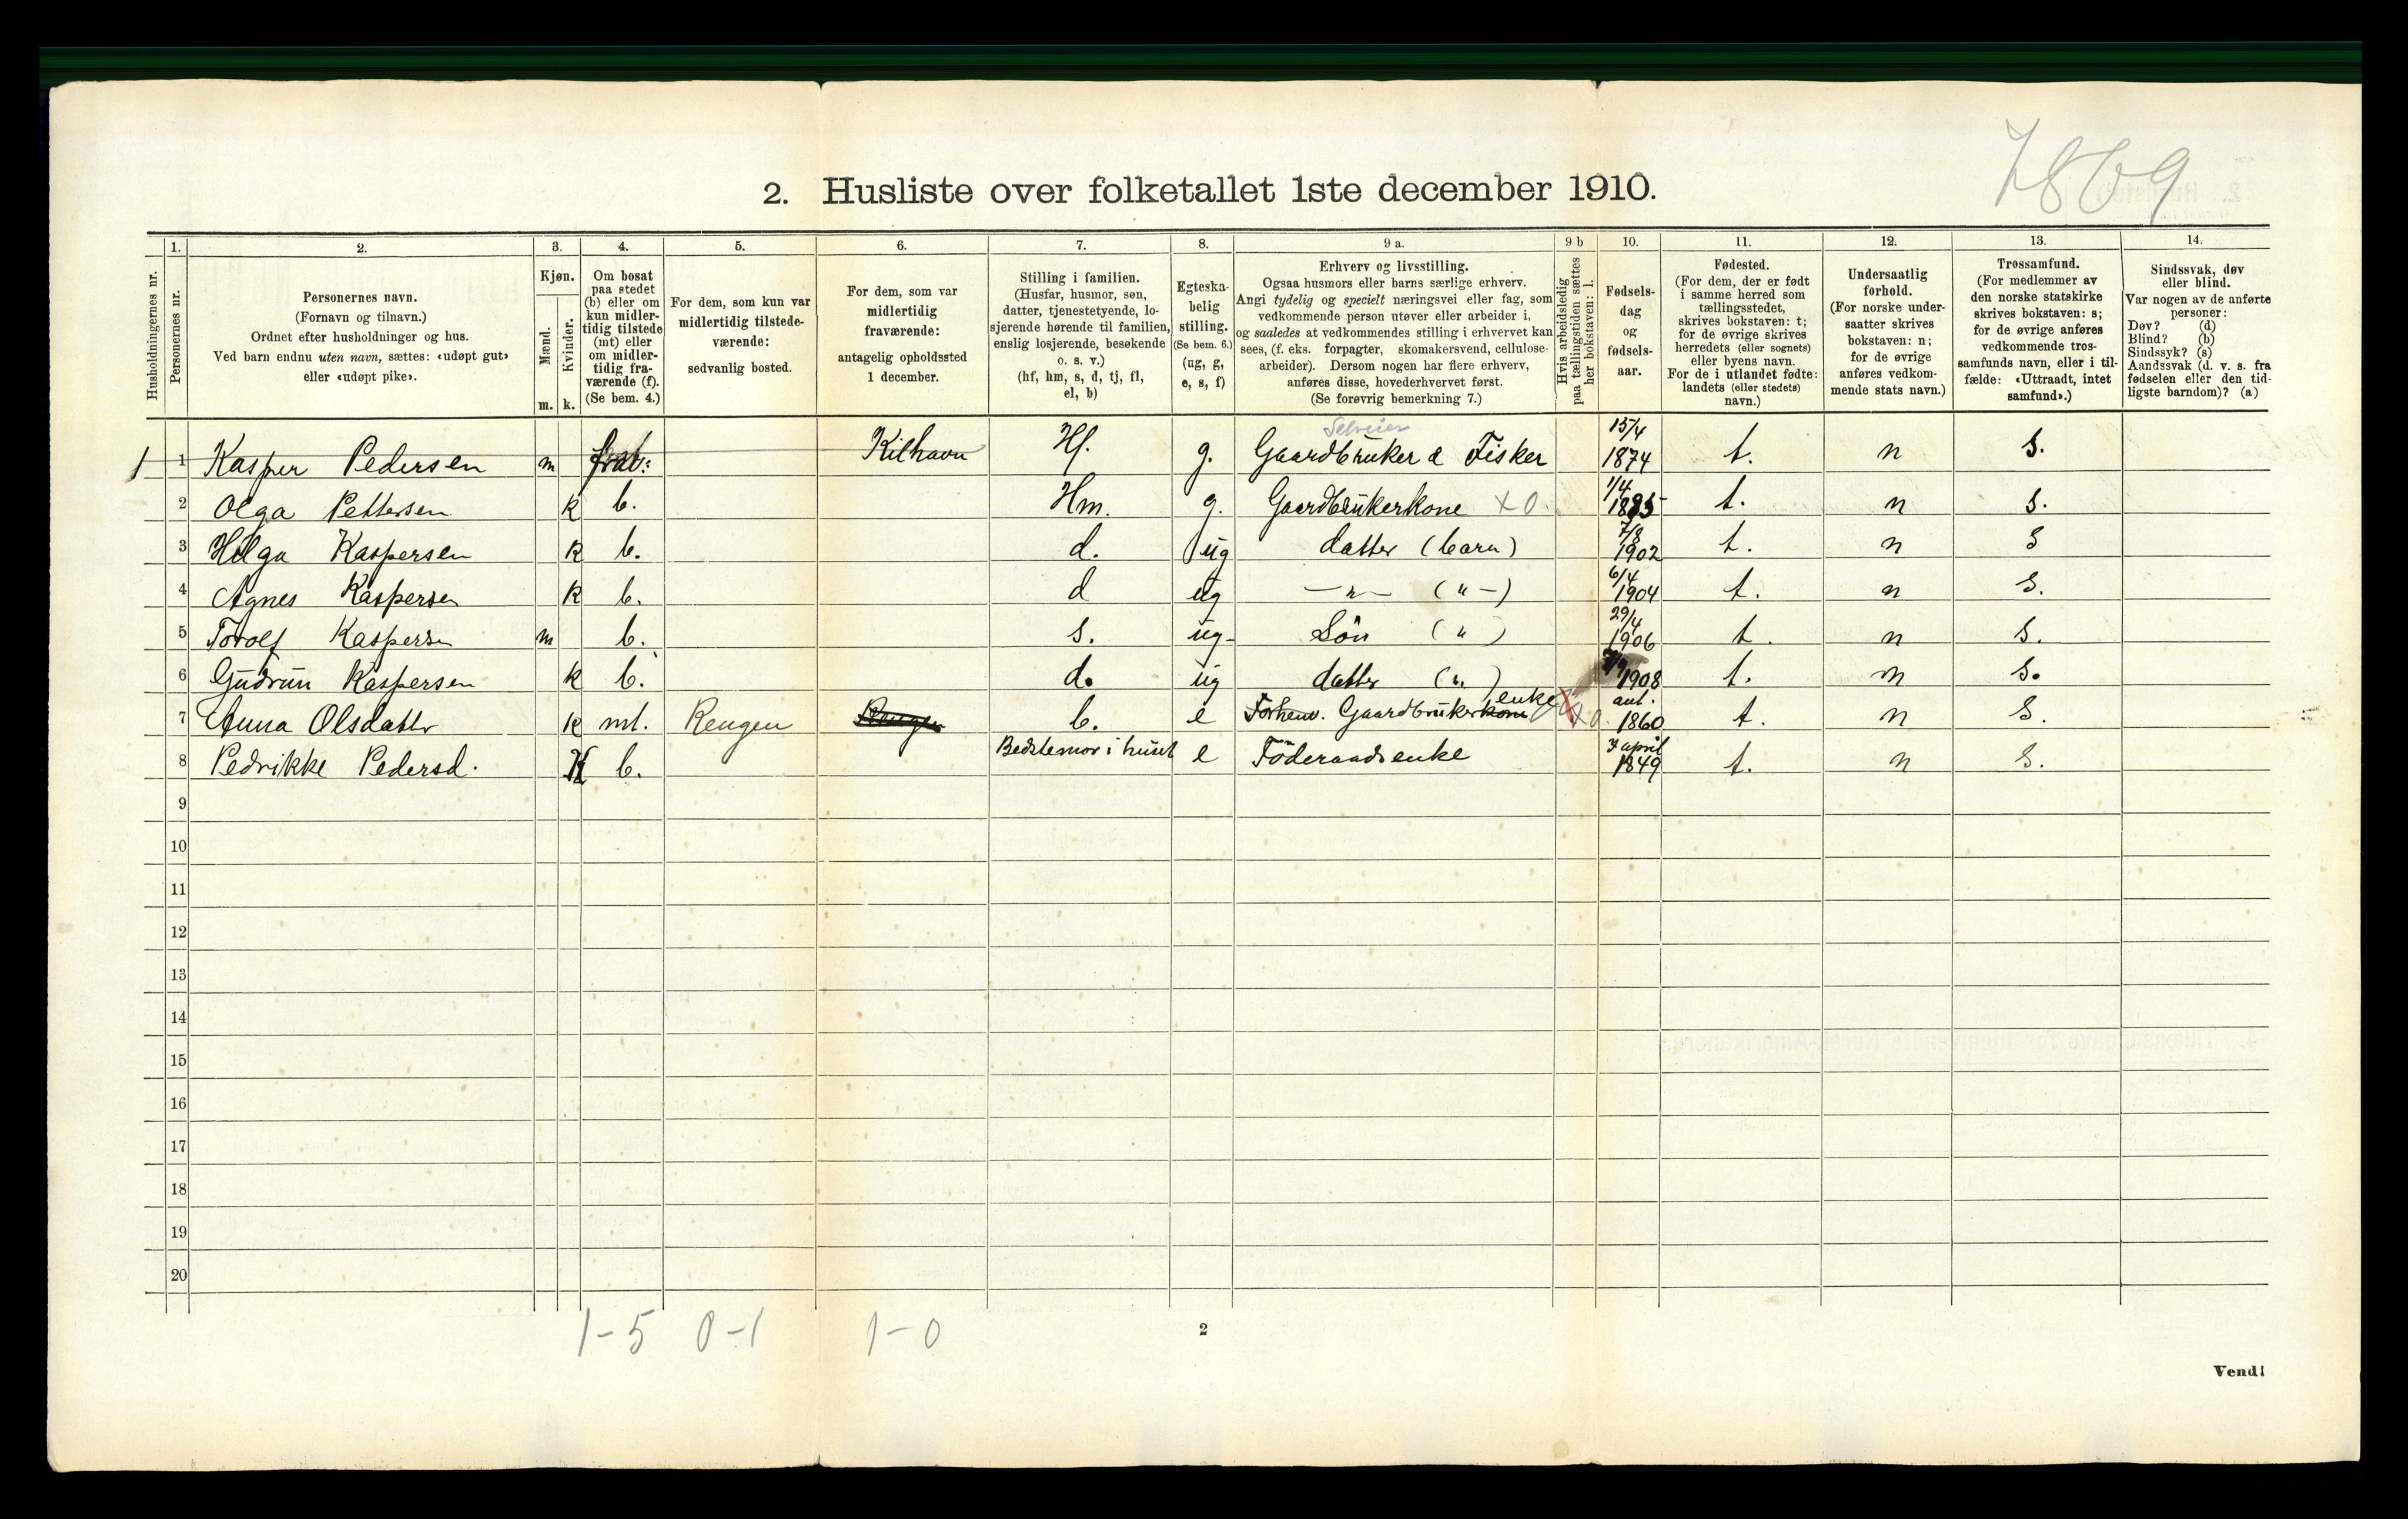 7869
2. Husliste over folketallet 1ste december 1910.
1. 2. 3. 4. 5. 6. 7. 8. 9 a. 9 b 10. 11. 12. 13. 14.
Husholdningernes nr.
Personernes nr.
Personernes navn.
(Fornavn og tilnavn.)
Ordnet efter husholdninger og hus.
Ved barn endnu uten navn, sættes: «udøpt gut»
eller «udøpt pike».
Kjøn.
Mænd.
Kvinder.
m. k.
Om bosat
paa stedet
(b) eller om
kun midler-
tidig tilstede
(mt) eller
om midler-
tidig fra-
værende (f).
(Se bem. 4.)
For dem, som kun var
midlertidig tilstede-
værende:
sedvanlig bosted.
For dem, som var
midlertidig
fraværende:
antagelig opholdssted
1 december.
Stilling i familien.
(Husfar, husmor, søn,
datter, tjenestetyende, lo-
sjerende hørende til familien,
enslig losjerende, besøkende
o. s. v.)
(hf, hm, s, d, tj, fl,
el, b)
Egteska-
belig
stilling.
(Se bem. 6.)
(ug, g,
e, s, f)
Erhverv og livsstilling.
Ogsaa husmors eller barns særlige erhverv.
Angi tydelig og specielt næringsvei eller fag, som
vedkommende person utøver eller arbeider i,
og saaledes at vedkommendes stilling i erhvervet kan
sees, (f. eks. forpagter, skomakersvend, cellulose-
arbeider). Dersom nogen har flere erhverv,
anføres disse, hovederhvervet først.
(Se forøvrig bemerkning 7.)
Hvis arbeidsledig
paa tællingstiden sættes
her bokstaven: l.
Fødsels-
dag
og
fødsels-
aar.
Fødested.
(For dem, der er født
i samme herred som
tællingsstedet,
skrives bokstaven: t;
for de øvrige skrives
herredets (eller sognets)
eller byens navn.
For de i utlandet fødte:
landets (eller stedets)
navn.)
Undersaatlig
forhold.
(For norske under-
saatter skrives
bokstaven: n;
for de øvrige
anføres vedkom-
mende stats navn.)
Trossamfund.
(For medlemmer av
den norske statskirke
skrives bokstaven: s;
for de øvrige anføres
vedkommende tros-
samfunds navn, eller i til-
fælde: «Uttraadt, intet
samfund».)
Sindssvak, døv
eller blind.
Var nogen av de anførte
personer:
Døv? (d)
Blind? (b)
Sindssyk? (s)
Aandssvak (d. v. s. fra
fødselen eller den tid-
ligste barndom)? (a)
Selveier
1 1 Kasper Pedersen m frav: Kilhavn Hf. g. Gaardbruker & Fisker 15/4 1874 t. n s.
2 Olga Pettersen k b. Hm. g. Gaardbrukerkone x 0. 1/4 1885 t. n s.
3 Helga Kaspersen k b. d. ug datter (barn) 7/8 1902 t. n s
4 Agnes Kaspersen k b. d ug —"— ("—) 6/4 1904 t. n s.
5 Torolf Kaspersen m b. s. ug- Sön (") 29/4 1906 t. n s.
6 Gudrun Kaspersen k b. d. ug datter (") 1908 t. n s.
7 Anna Olsdatter k mt. Rengen Rengen b. e Forhenv. Gaardbrukerkone enke x 0. ant. 1860 t. n s.
8 Pedrikke Pedersd. K b. Bedstemor i huset e Föderaadsenke 7 april 1849 t. n s.
9
10
11
12
13
14
15
16
17
18
19
20
1-5 0-1 1-0
2
Vend!